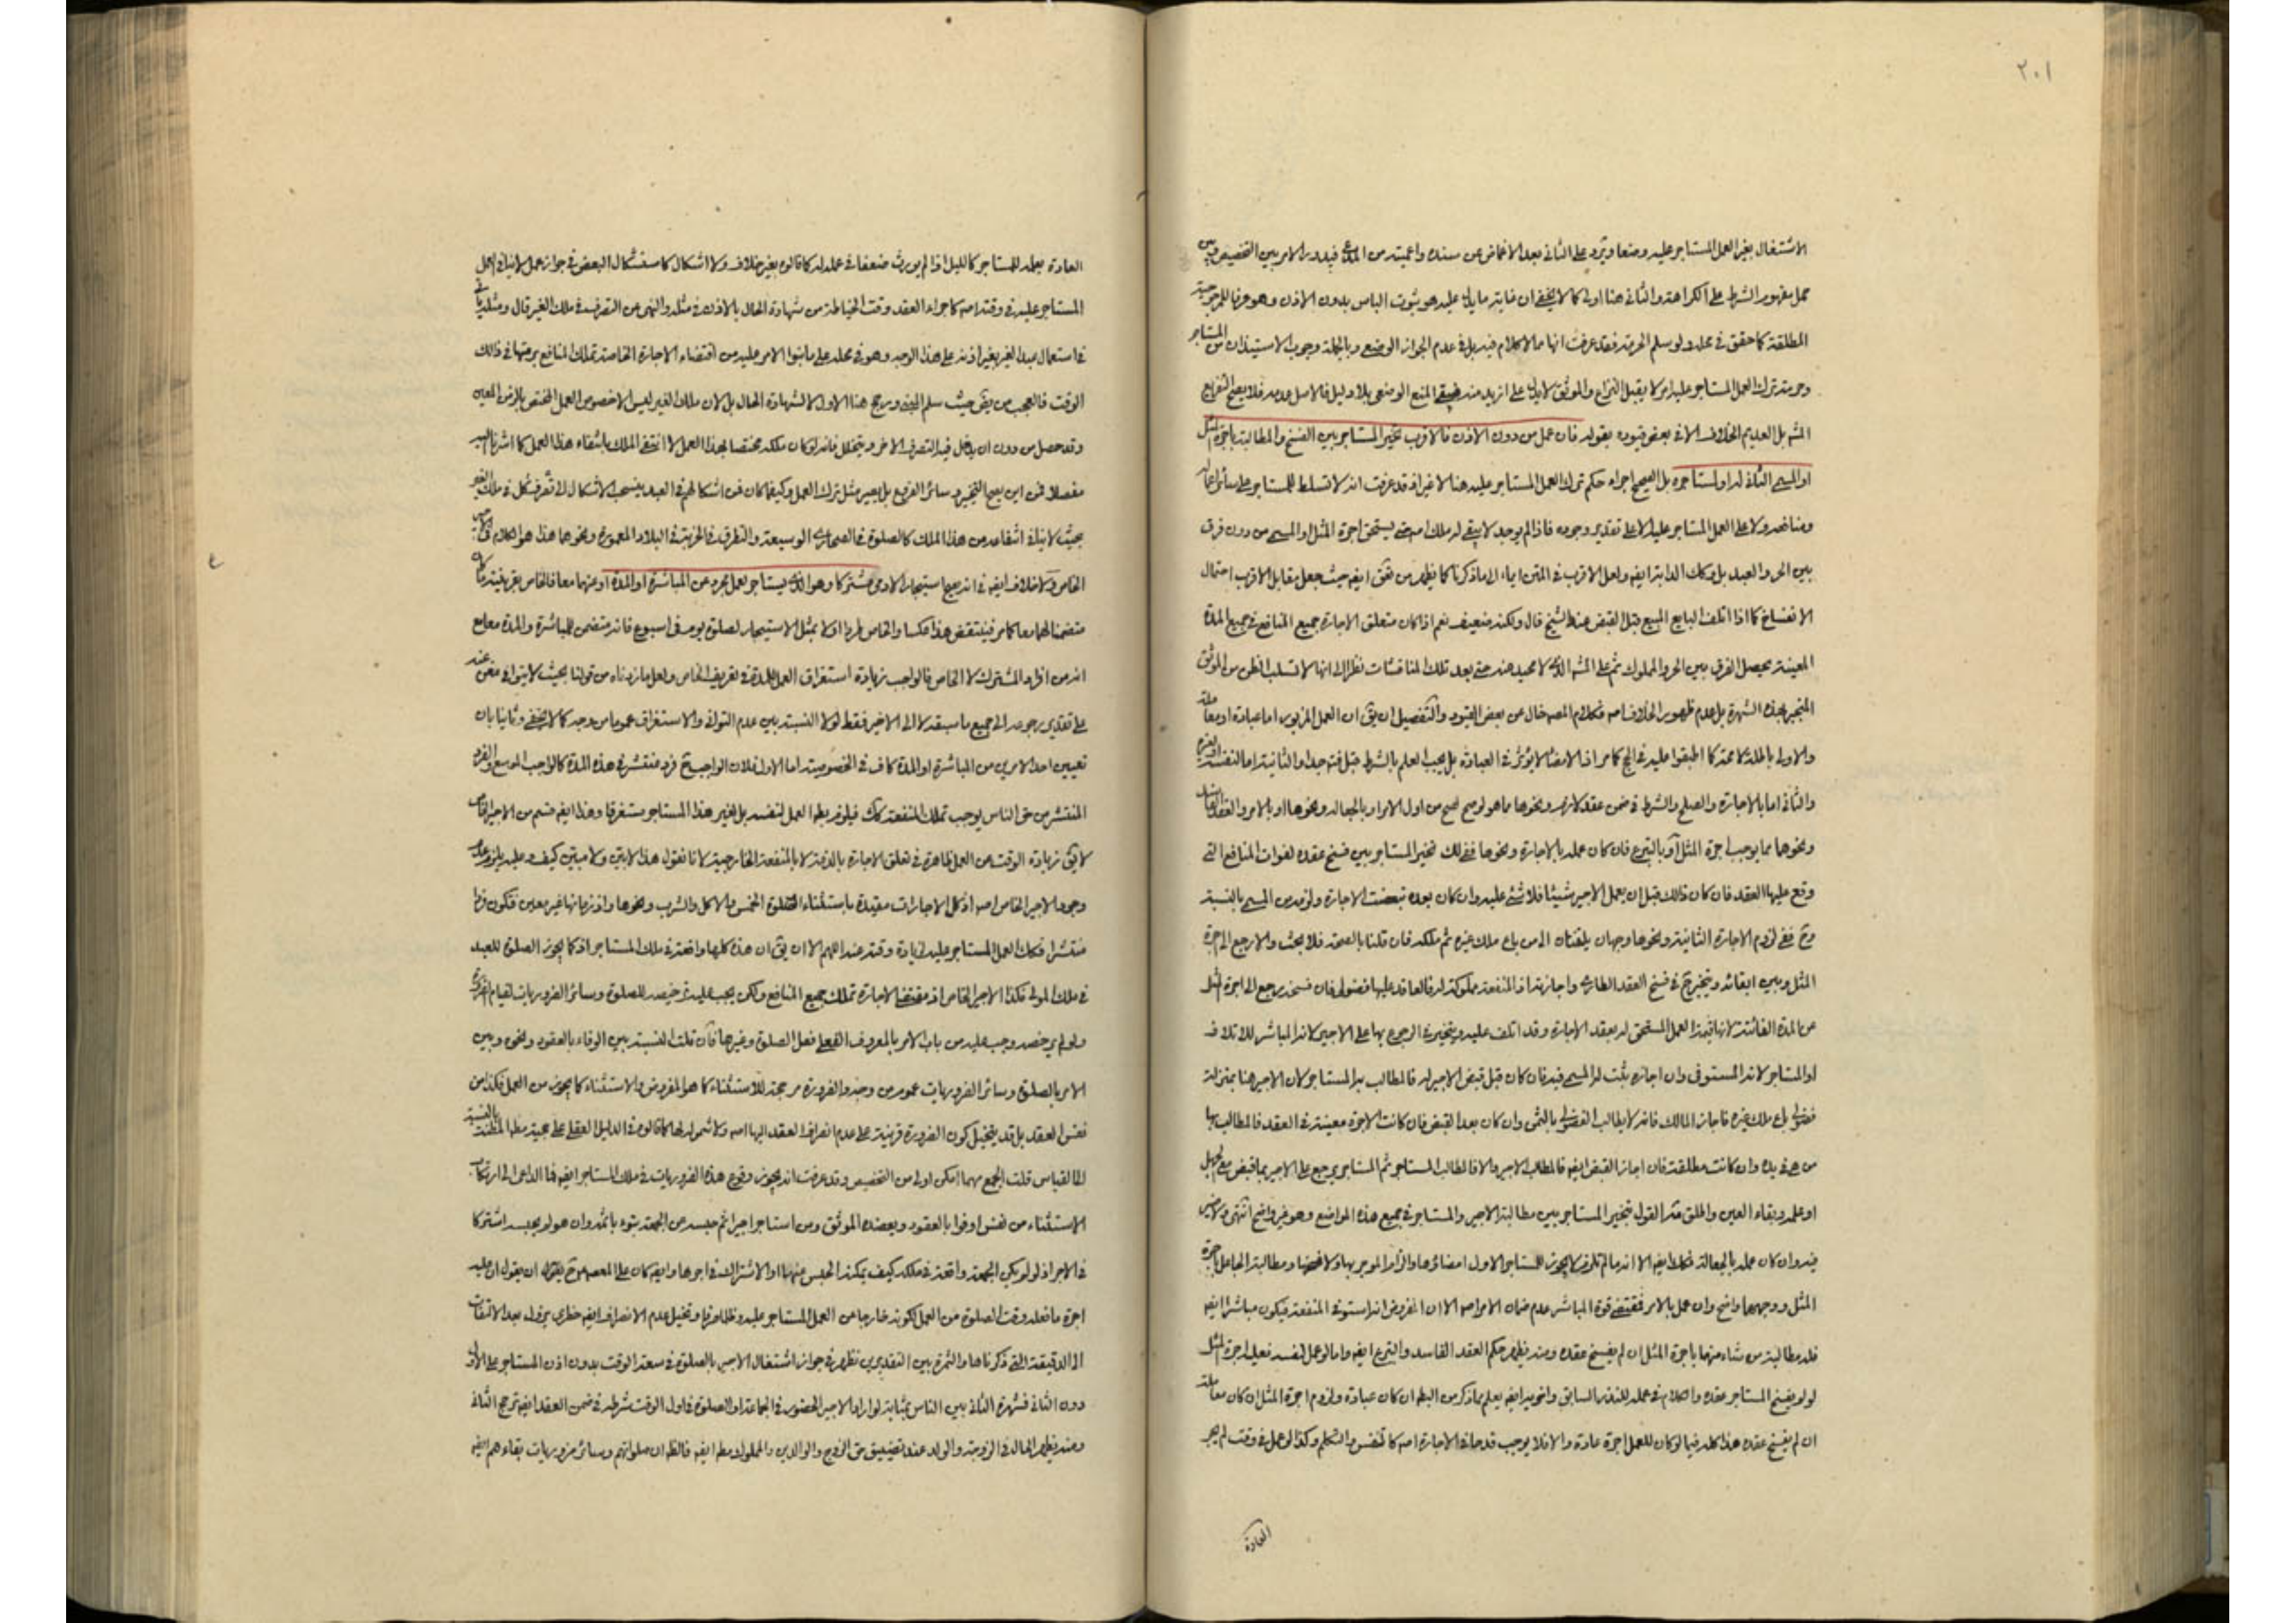 ٢٠١
الاشتغال بغير العمل المستاجر عليه وضعا ويرد على الثانى بعد الاغماض عن سنده واعميته من المدعى فيدور الامر بين التخصيص وبين
حمل مفهوم الشرط على الكراهة والثانى هنا اولى كما لا يخفى ان غاية ما يدل عليه هو ثبوت الباس بدون الاذن وهو عرفا للمرجوحية
المطلقة كما حقق فى محله ولو سلم الحرمة فقد عرفت انها مما لا كلام فيه بل فى عدم الجواز الوضعى وبالجملة وجوب الاستيذان من المستاجر
وحرمة ترك العمل المستاجر عليه امر لا يقبل النزاع والموثق لا يدل على ازيد منه فيبقى المنع الوضعى بلا دليل فالاصل عدمه فلا يصح التفريع
المشهور بل العديم الخلاف الا فى بعض قيوده بقوله فان عمل من دون الاذن فالاقرب تخير المستاجر بين الفسخ والمطالبة باجرة المثل
او المسمى الثابت له او لمستاجره بل الصحيح اجراء حكم ترك العمل المستاجر عليه هنا لا غير اذ قد عرفت انه لا تسلط للمستاجر على سائر اعماله
ومنافعه ولا على العمل المستاجر عليه الا على تقدير وجوده فاذا لم يوجد لا يبقى له ملك اصلا حتى يستحق اجرة المثل او المسمى من دون فرق
بين الحر والعبد بل وكك الدابة ايضا ولعل الاقرب فى المتن ايماء الى ما ذكرنا كما يظهر من المحقق ايضا حيث جعل مقابل الاقرب احتمال
الانفساخ كما اذا اتلف البايع المبيع قبل القبض عند الشيخ قال ولكنه ضعيف نعم اذا كان متعلق الاجارة جميع المنافع فى جميع المدة
المعينة يحصل الفرق بين الحر والمملوك ثم على المشهور الذى لا محيد عنه حتى بعد تلك المناقشات نظرا الى انها لا تسلب الظن من الموثق
المنجبر بهذه الشهرة بل عدم ظهور الخلاف اصلا فكلام المصنف خال عن بعض القيود والتفصيل ان يقال ان العمل المزبور اما عبادة او معاملة
والاولى باطلة لا محة كما اطبقوا عليه فى الحج كما مر اذ الامضاء لا يؤثر فى العبادة بل يجب العلم بالشرط قبل فتح جدا والثانية اما لنفسه او لغيره
والثانى اما بالاجارة والصلح والشرط فى ضمن عقد لازم ونحوها ما هو لو صح لصح من اول الامر او بالجعالة ونحوها او بالامر والعقد الفاسد
ونحوهما مما يوجب اجرة المثل او بالتبرع فان كان عمله بالاجارة ونحوها ففى ذلك تخير المستاجر بين فسخ عقده لفوات المنافع التى
وقع عليها العقد فان كان ذلك قبل ان يعمل الاجير شيئا فلا شئ عليه وان كان بعده تبعضت الاجارة ولزمه من المسمى بالنسبة
وح ففى لزوم الاجارة الثانية ونحوها وجهان يلتفتان الى من باع ملك غيره ثم ملكه فان قلنا بالصحة فلا بحث والا رجع الى اجرة
المثل وبين ابقائه ويتخير ح فى فسخ العقد الطارى واجازته اذ المنفعة مملوكة له فالعاقد عليها فضولى فان فسخه رجع الى اجرة المثل
عن المدة الفائتة لانها قيمة العمل المستحق له بعقد الاجارة وقد اتلف عليه ويتخير فى الرجوع بها على الاجير لانه المباشر للاتلاف
او المستاجر لانه المستوفى وان اجازه ثبت له المسمى فيه فان كان قبل قبض الاجير له فالمطالب به المستاجر لان الاجير هنا بمنزلة
فضولى باع ملك غيره فاجاز المالك فانه لا يطالب الفضولى بالثمن وان كان بعد القبض فان كانت الاجرة معينة فى العقد فالمطالب بها
من هى فى يده وان كانت مطلقة فان اجاز القبض ايضا فالمطالب الاجير والا فالمطالب المستاجر ثم المستاجر يرجع على الاجير بما قبض مع الجهل
او علمه وبقاء العين واطلق القول بتخير المستاجر بين مطالبة الاجير والمستاجر فى جميع هذه المواضع وهو غير واضح انتهى
فيه وان كان عمله بالجعالة فكك ايضا الا انه ما لم تلزم لا يجوز للمستاجر الاول امضاؤها والزام الموجر بها ومطالبة الجاعل باجرة
المثل ووجههما واضح وان عمل بالامر فمقتضى قوة المباشر عدم ضمان الامر اصلا الا ان المفروض انه استوفى المنفعة فيكون مباشرا ايضا
فله مطالبة من شاء منهما باجرة المثل ان لم يفسخ عقده ومنه يظهر حكم العقد الفاسد والتبرع ايضا واما لو عمل لنفسه فعليه اجرة المثل
لو لم يفسخ المستاجر عقده والكلام فى عمله للنذر السابق ونحوه ايضا يعلم مما ذكر من البطلان ان كان عبادة ولزوم اجرة المثل ان كان معاملة
ان لم يفسخ عقده هذا كله فيما لو كان للعمل اجرة عادة والا فلا يوجب قدحا فى الاجارة اصلا كالتنفس والتكلم وكذا لو عمل فى وقت لم يجر
العادة
العادة بعمله للمستاجر كالليل اذا لم يورث ضعفا فى عمله له كما قالوه بغير خلاف ولا اشكال كاستشكال البعض فى جواز عمل لا ينافى العمل
المستاجر عليه فى وقته اصلا كاجراء العقد وقت الخياطة من شهادة الحال بالاذن فى مثله والنهى عن التصرف فى ملك الغير قال ومثله ياتى
فى استعمال عبد الغير بغير اذنه على هذا الوجه وهو فى محله على ما بنوا الامر عليه من اقتضاء الاجارة الخاصة تملك المنافع برمتها فى ذلك
الوقت فالعجب من حيث سلم المبنى ورجح هنا الاول لا لشهادة الحال بل لان ملك الغير ليس الا خصوص العمل المختص بالزمن المعين
وقد حصل من دون ان يدخل فيه التصرف الاخر ويتخلل فانه لو كان ملكه مختصا بهذا العمل لانتفى الملك بانتفاء هذا العمل كما اشرنا اليه
مفصلا فمن اين يصح التخيير وسائر الفروع بل يصير مثل ترك العمل وكيفما كان فمن اشكالهم فى العبد ينسحب الاشكال الى تصرف كل فى ملك الغير
بحيث لا ينافى انتفاعه من هذا الملك كالصلوة فى الصحارى الوسيعة والتطرق فى الخربة فى البلاد المعمورة ونحوها هذا هو الكلام فى الاجير
الخاص ولا خلاف ايضا فى انه يصح استيجار الادمى مشتركا وهو الذى يستاجر لعمل مجرد عن المباشرة او المدة او عنهما معا فالخاص بقرينته ما كان
متضمنا لهما معا كما مر فينتقض هذا عكسا والخاص طردا اولا بمثل الاستيجار لصلوة يوم فى اسبوع فانه متضمن للمباشرة والمدة معا مع
انه من افراد المشترك لا الخاص فالواجب زيادة استغراق العمل للمدة فى تعريف الخاص ولعل ما زدناه من قولنا بحيث لا يتوانى مغن عنه
على تقدير رجوعه الى جميع ما سبقه لا الى الاخير فقط لولا النسبة بين عدم التوانى والاستغراق عموما من وجه كما لا يخفى وثانيا بان
تعيين احد الامرين من المباشرة او المدة كاف فى الخصوصية اما الاول فلان الواجب ح فرد منتشر فى هذه المدة كالواجب الموسع والفرد
المنتشر من حق الناس يوجب تملك المنفعة كك فيلزم بطلان العمل لنفسه بل لغير هذا المستاجر مستغرقا وهذا ايضا قسم من الاجير الخاص
لا يق زيادة الوقت عن العمل ظاهرة فى تعلق الاجارة بالذمة لا بالمنفعة الخارجية لانا نقول هذا لا بين ولا مبين كيف وعليه يلزم عدم
وجود الاجير الخاص اصلا اذ كل الاجارات مقيدة باستثناء الصلوة الخمس والاكل والشرب ونحوها واذ زمانها غير معين فتكون فردا
منتشرا فكك العمل المستاجر عليه لزيادة وقته عنه اللهم الا ان يق ان هذه كلها واقعة فى ملك المستاجر اذ كما يجوز الصلوة للعبد
فى ملك المولى فكذا الاجير الخاص اذ مقتضى الاجارة تملك جميع المنافع ولكن يجب عليه ترخيصه للصلوة وسائر الضروريات لقيام الضرورة
ولو لم يرخصه وجب عليه من باب الامر بالمعروف فعل الصلوة وغيرها فان قلت النسبة بين الوفاء بالعقود ونحوه وبين
الامر بالصلوة وسائر الضروريات عموم من وجه والضرورة مرجحة للاستثناء كما هو المفروض والاستثناء كما يجوز من العمل فكذا من
نفس العقد بل قد يتخيل كون الضرورة قرينة على عدم انصراف العقد اليها اصلا ولا شموله لها كما قالوه فى الدليل العقلى على حجية مطلق المظنة بالنسبة
الى القياس قلت الجمع مهما امكن اولى من التخصيص وقد عرفت انه يجوز وقوع هذه الضروريات فى ملك المستاجر ايضا فما الداعى الى ارتكاب
الاستثناء من نفس اوفوا بالعقود ويعضده الموثق ومن استاجر اجيرا ثم حبسه عن الجمعة يتوء باثمه وان هو لم يحبسه اشتركا
فى الاجر اذ لو لم يكن الجمعة واقعة فى ملكه كيف يمكنه الحبس عنها او الاشتراك فى اجرها وايضا كان على المعصوم ح ان يقول ان عليه
اجرة ما فعله وقت الصلوة من العمل لكونه خارجا عن العمل المستاجر عليه وتخيل عدم الانصراف ايضا خطرى يزول بعد الالتفات
الى الدقيقة التى ذكرناها والثمرة بين التقديرين تظهر فى جواز اشتغال الاجير بالصلوة فى سعة الوقت بدون اذن المستاجر على الاول
دون الثانى فشهرة الثانى بين الناس بمثابة لو اراد الاجير الحضور فى الجماعة او الصلوة فى اول الوقت شرطه فى ضمن العقد ايضا ترجح الثانى
ومنه يظهر الحال فى الزوجة والولد عند تضييق حق الزوج والوالدين والمملوك مطلقا ايضا فالظاهر ان صلواتهم وسائر ضروريات بقاءهم ايضا